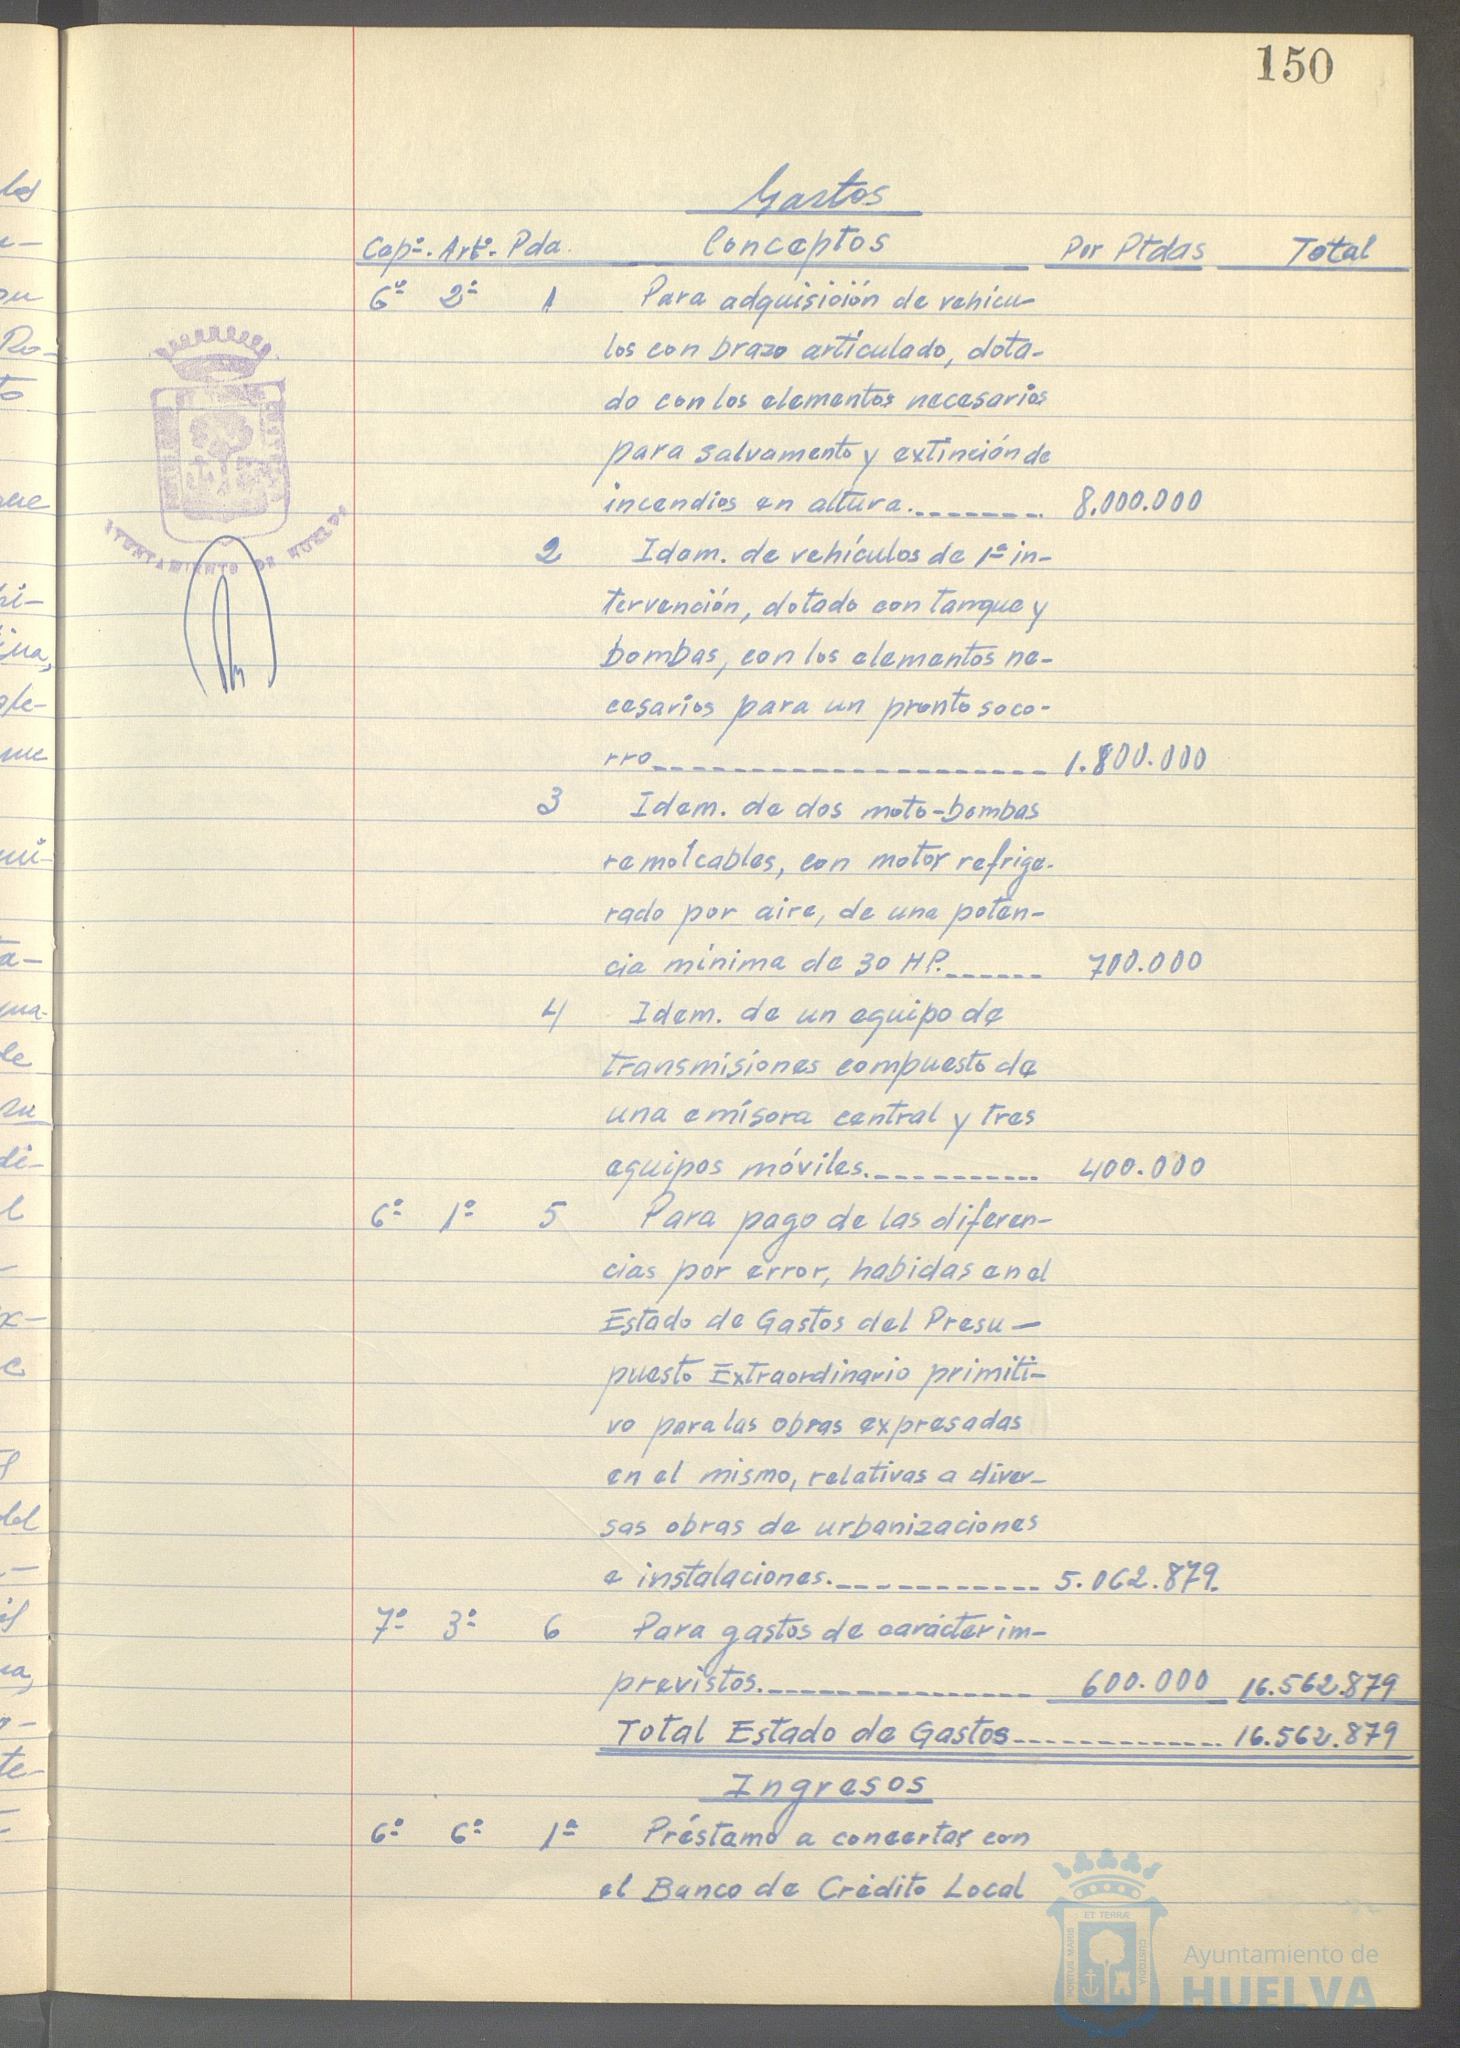 150
Gastos
Capº. Artº. Pda. Conceptos Por Ptdas Total
6º 2º 1 Para adquisición de vehícu-
los con brazo artículado, dota-
do con los elementos necesarios
para salvamento y extinción de
incendios en altura. 8.000.000
2 Idem. de vehículos de 1ª in-
tervención, dotado con tanque y
bombas, con los elementos ne-
cesarios para un pronto soco-
rro 1.800.000
3 Idem. de dos moto-bombas
remolcables, con motor refrige-
rado por aire, de una poten-
cia mínima de 30 HP. 700.000
4 Idem. de un equipo de
transmisiones compuesto de
una emisora central y tres
equipos móviles. 400.000
6º 1º 5 Para pago de las diferen-
cias por error, habidas en el
Estado de Gastos del Presu-
puesto Extraordinario primiti-
vo para las obras expresadas
en el mismo, relativas a diver-
sas obras de urbanizaciones
e instalaciones. 5.062.879.
7º 3º 6 Para gastos de carácter im-
previstos. 600.000 16.562.879
Total Estado de Gastos 16.562.879
Ingresos
6º 6º 1ª Préstamo a concertar con
el Banco de Crédito Local
AYUNTAMIENTO DE HUELVA
PORTUS MARIS ET TERRÆ CUSTODIA
Ayuntamiento de
HUELVA